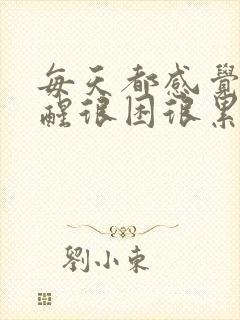 每天都感覺
醒很困很累
劉小東